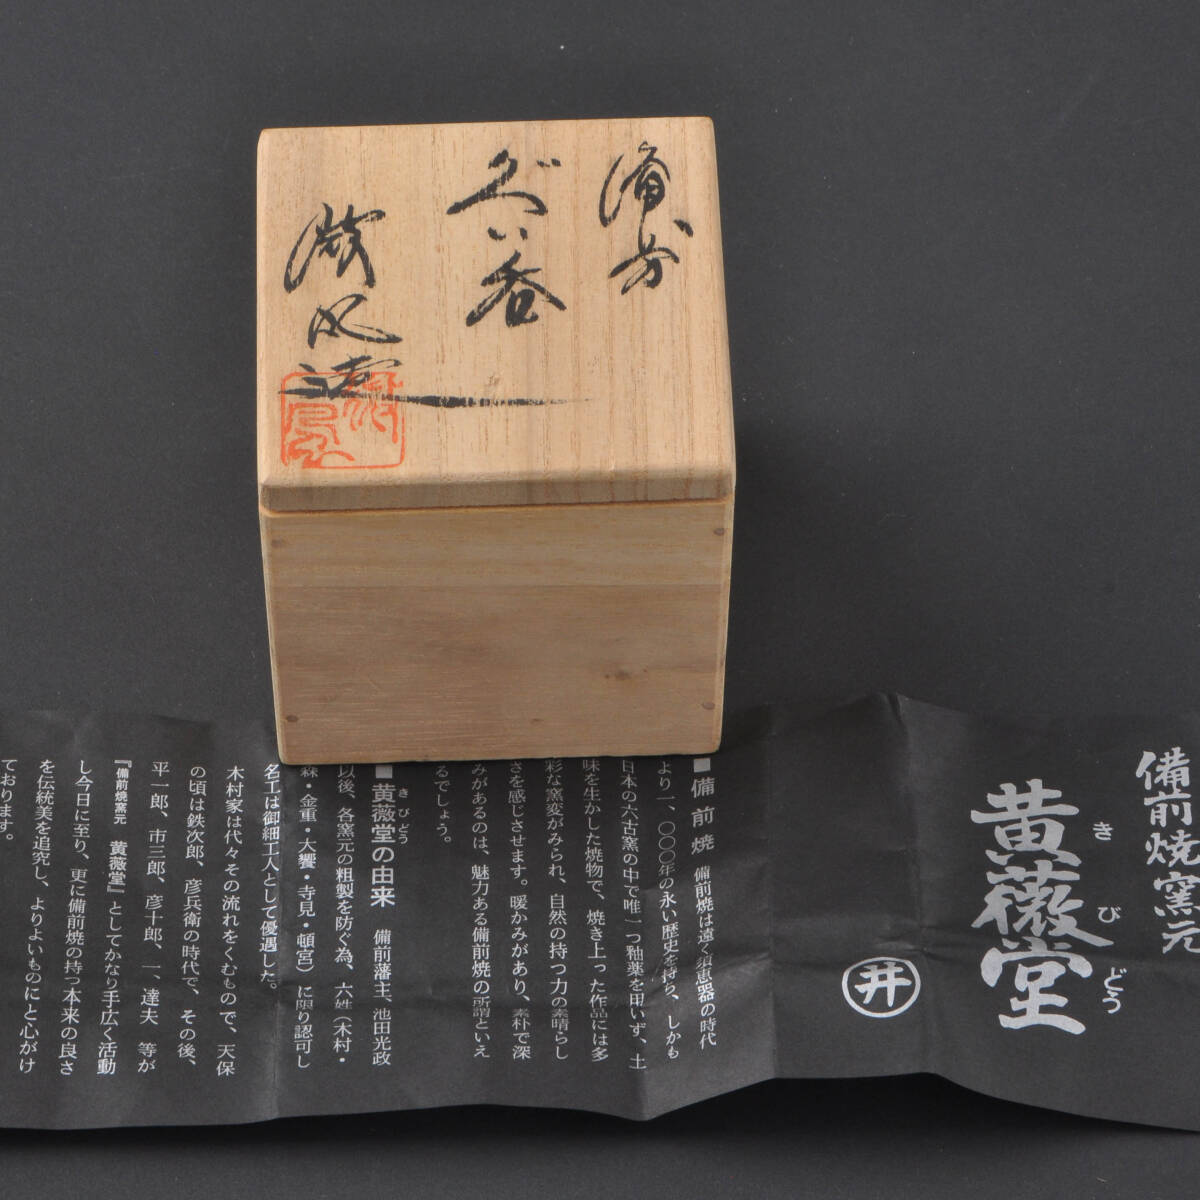 備前
ぐい呑
備前焼窯元
黄薇堂
きびどう
井
■備前焼 備前焼は遠く須恵器の時代
より一、〇〇〇年の永い歴史を持ち、しかも
日本の六古窯の中で唯一つ釉薬を用いず、土
味を生かした焼物で、焼き上った作品には多
彩な窯変がみられ、自然の持つ力の素晴らし
さを感じさせます。暖かみがあり、素朴で深
みがあるのは、魅力ある備前焼の所謂といえ
るでしょう。
■黄薇堂の由来 備前藩主、池田光政
きびどう
以後、各窯元の粗製を防ぐ為、六姓(木村・
森・金重・大饗・寺見・頓宮)に限り認可し
名工は御細工人として優遇した。
木村家は代々その流れをくむもので、天保
の頃は鉄次郎、彦兵衛の時代で、その後、
平一郎、市三郎、彦十郎、一、達夫 等が
『備前焼窯元 黄薇堂』としてかなり手広く活動
し今日に至り、更に備前焼の持つ本来の良さ
を伝統美を追究し、よりよいものにと心がけ
ております。